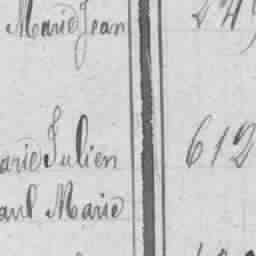 Marie Jean 249
arie Julien 612
aul Marie